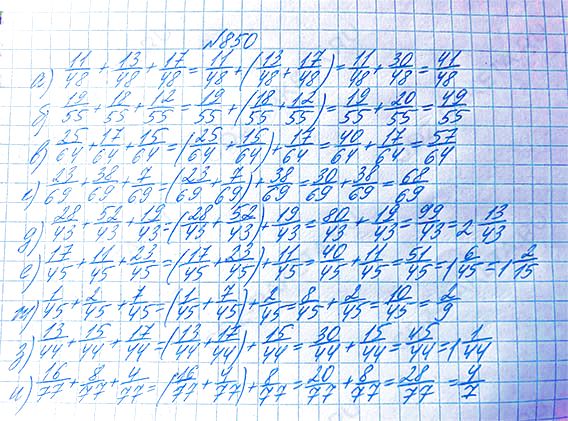 №850
а) 11/48 + 13/48 + 17/48 = 11/48 + (13/48 + 17/48) = 11/48 + 30/48 = 41/48
б) 19/55 + 18/55 + 12/55 = 19/55 + (18/55 + 12/55) = 19/55 + 20/55 = 49/55
в) 25/64 + 17/64 + 15/64 = (25/64 + 15/64) + 17/64 = 40/64 + 17/64 = 57/64
г) 23/69 + 38/69 + 7/69 = (23/69 + 7/69) + 38/69 = 30/69 + 38/69 = 68/69
д) 28/43 + 52/43 + 19/43 = (28/43 + 52/43) + 19/43 = 80/43 + 19/43 = 99/43 = 2 13/43
е) 17/45 + 11/45 + 23/45 = (17/45 + 23/45) + 11/45 = 40/45 + 11/45 = 51/45 = 1 6/45 = 1 2/15
ж) 1/45 + 2/45 + 7/45 = (1/45 + 7/45) + 2/45 = 8/45 + 2/45 = 10/45 = 2/9
з) 13/44 + 15/44 + 17/44 = (13/44 + 17/44) + 15/44 = 30/44 + 15/44 = 45/44 = 1 1/44
и) 16/77 + 8/77 + 4/77 = (16/77 + 4/77) + 8/77 = 20/77 + 8/77 = 28/77 = 4/7